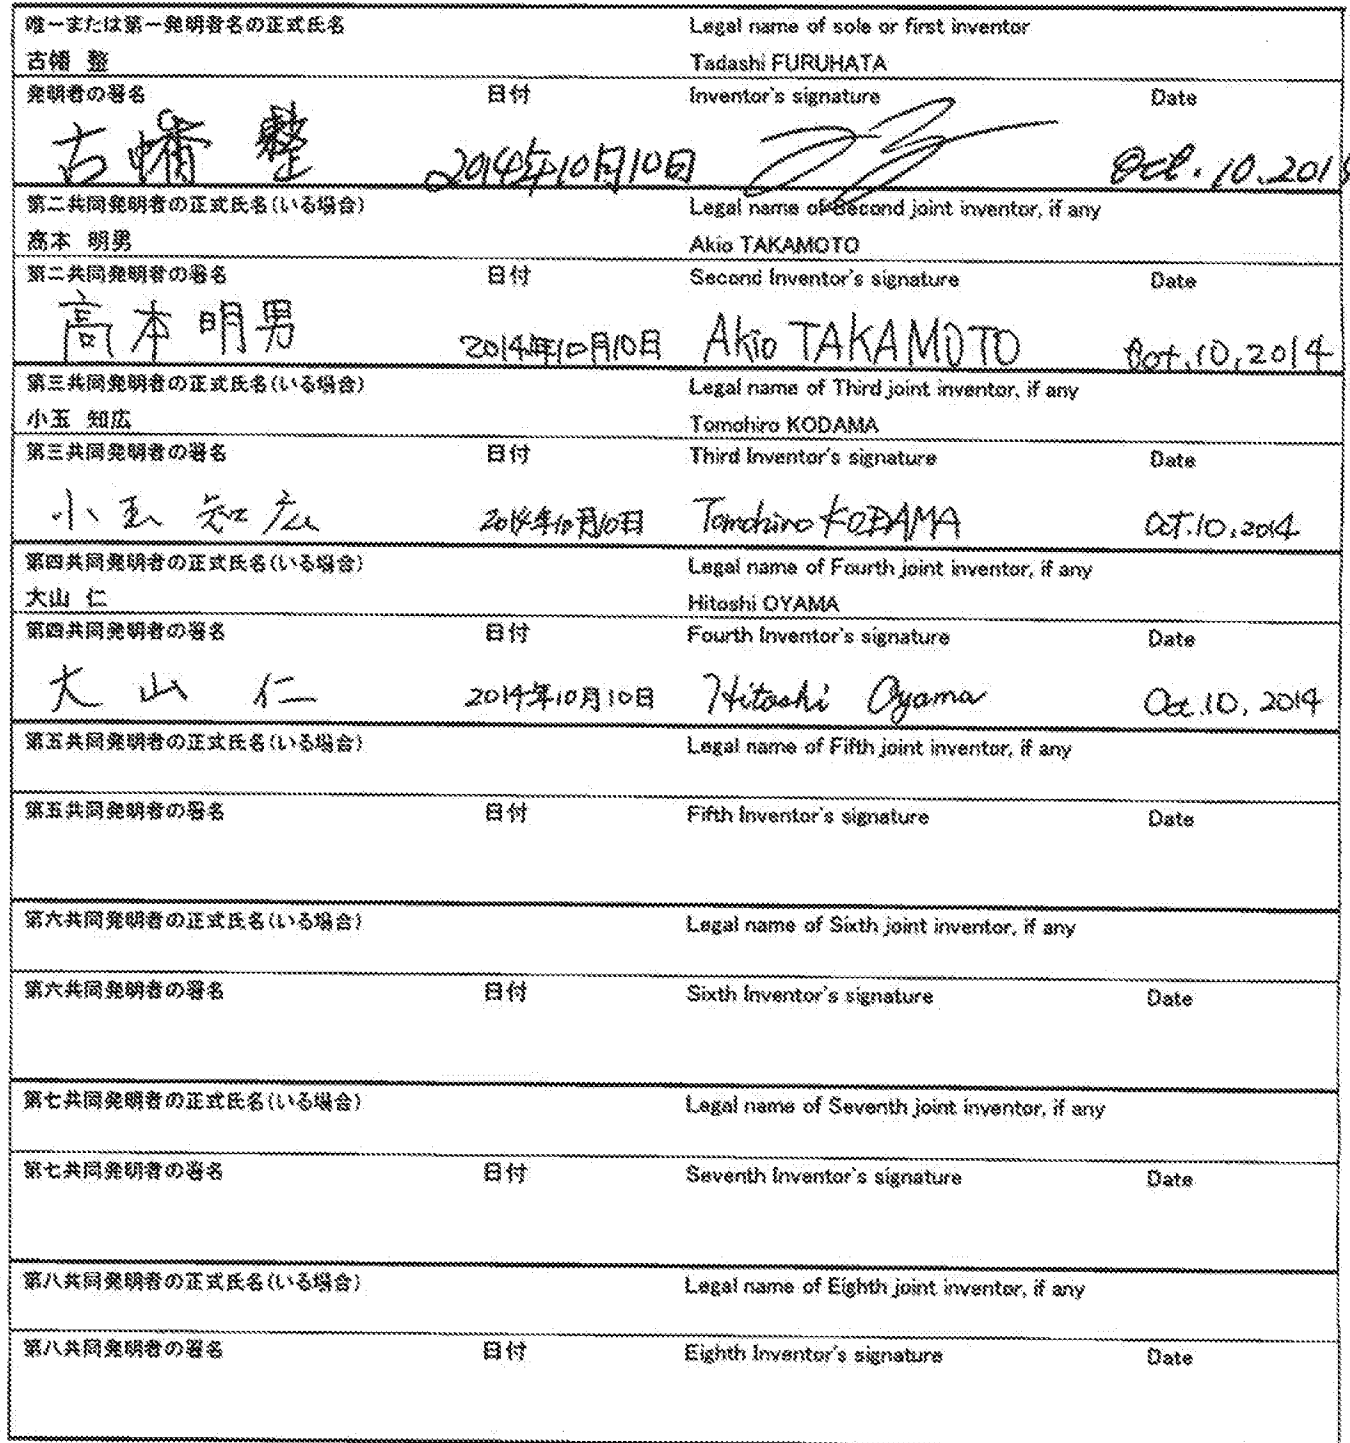 唯一または第一発明者名の正式氏名 Legal name of sole or first inventor
古幡 整 Tadashi FURUHATA
発明者の署名 日付 Inventor's signature Date
古幡 整 2014年10月10日 Oct. 10. 201
第二共同発明者の正式氏名(いる場合) Legal name of Second joint inventor, if any
高本 明男 Akio TAKAMOTO
第二共同発明者の署名 日付 Second Inventor's signature Date
高本明男 2014年10月10日 Akio TAKAMOTO Oct.10,2014
第三共同発明者の正式氏名(いる場合) Legal name of Third joint inventor, if any
小玉 知広 Tomohiro KODAMA
第三共同発明者の署名 日付 Third Inventor's signature Date
小玉 知広 2014年10月10日 Tomohiro KODAMA OCT.10,2014
第四共同発明者の正式氏名(いる場合) Legal name of Fourth joint inventor, if any
大山 仁 Hitoshi OYAMA
第四共同発明者の署名 日付 Fourth Inventor's signature Date
大山 仁 2014年10月10日 Hitoshi Oyama Oct.10, 2014
第五共同発明者の正式氏名(いる場合) Legal name of Fifth joint inventor, if any
第五共同発明者の署名 日付 Fifth Inventor's signature Date
第六共同発明者の正式氏名(いる場合) Legal name of Sixth joint inventor, if any
第六共同発明者の署名 日付 Sixth Inventor's signature Date
第七共同発明者の正式氏名(いる場合) Legal name of Seventh joint inventor, if any
第七共同発明者の署名 日付 Seventh Inventor's signature Date
第八共同発明者の正式氏名(いる場合) Legal name of Eighth joint inventor, if any
第八共同発明者の署名 日付 Eighth Inventor's signature Date